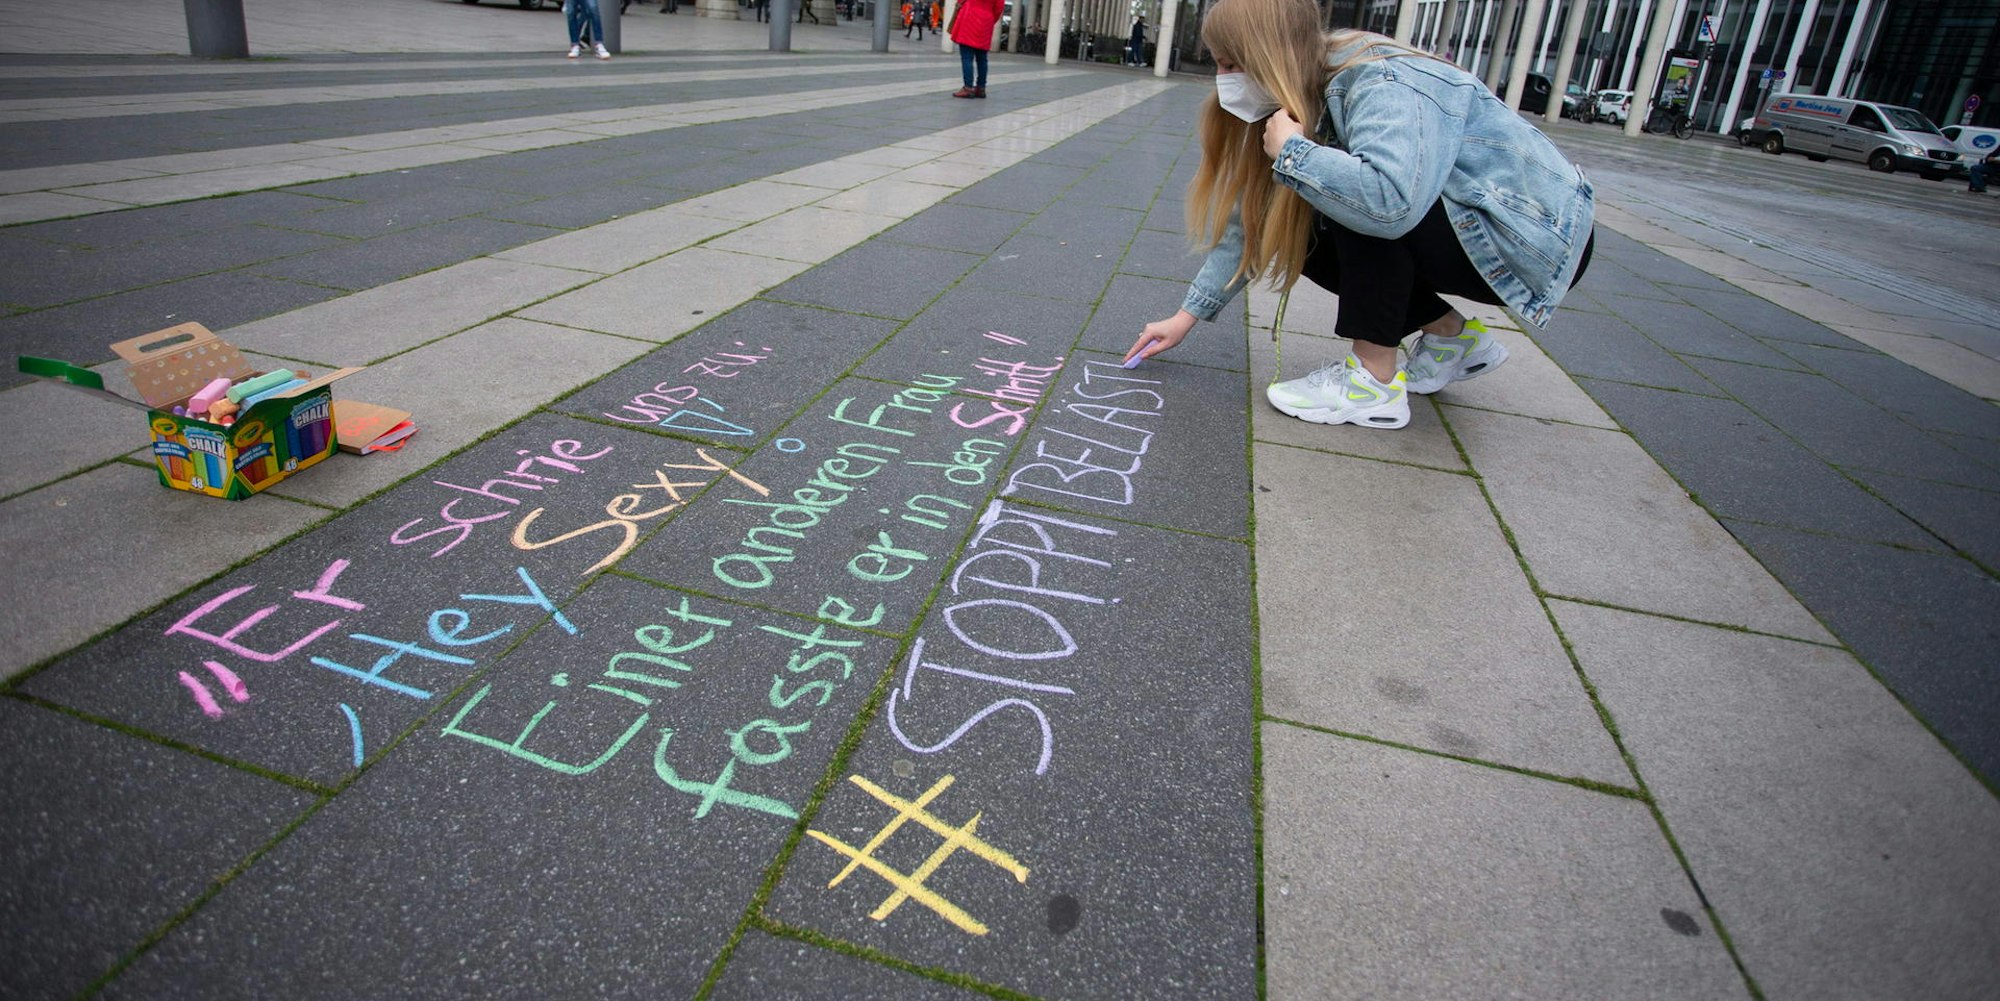 "Er schrie uns zu:
'Hey Sexy'
Einer anderen Frau
fasste er in den Schritt."
#STOPPTBELÄST
CHALK
48
CHALK
48